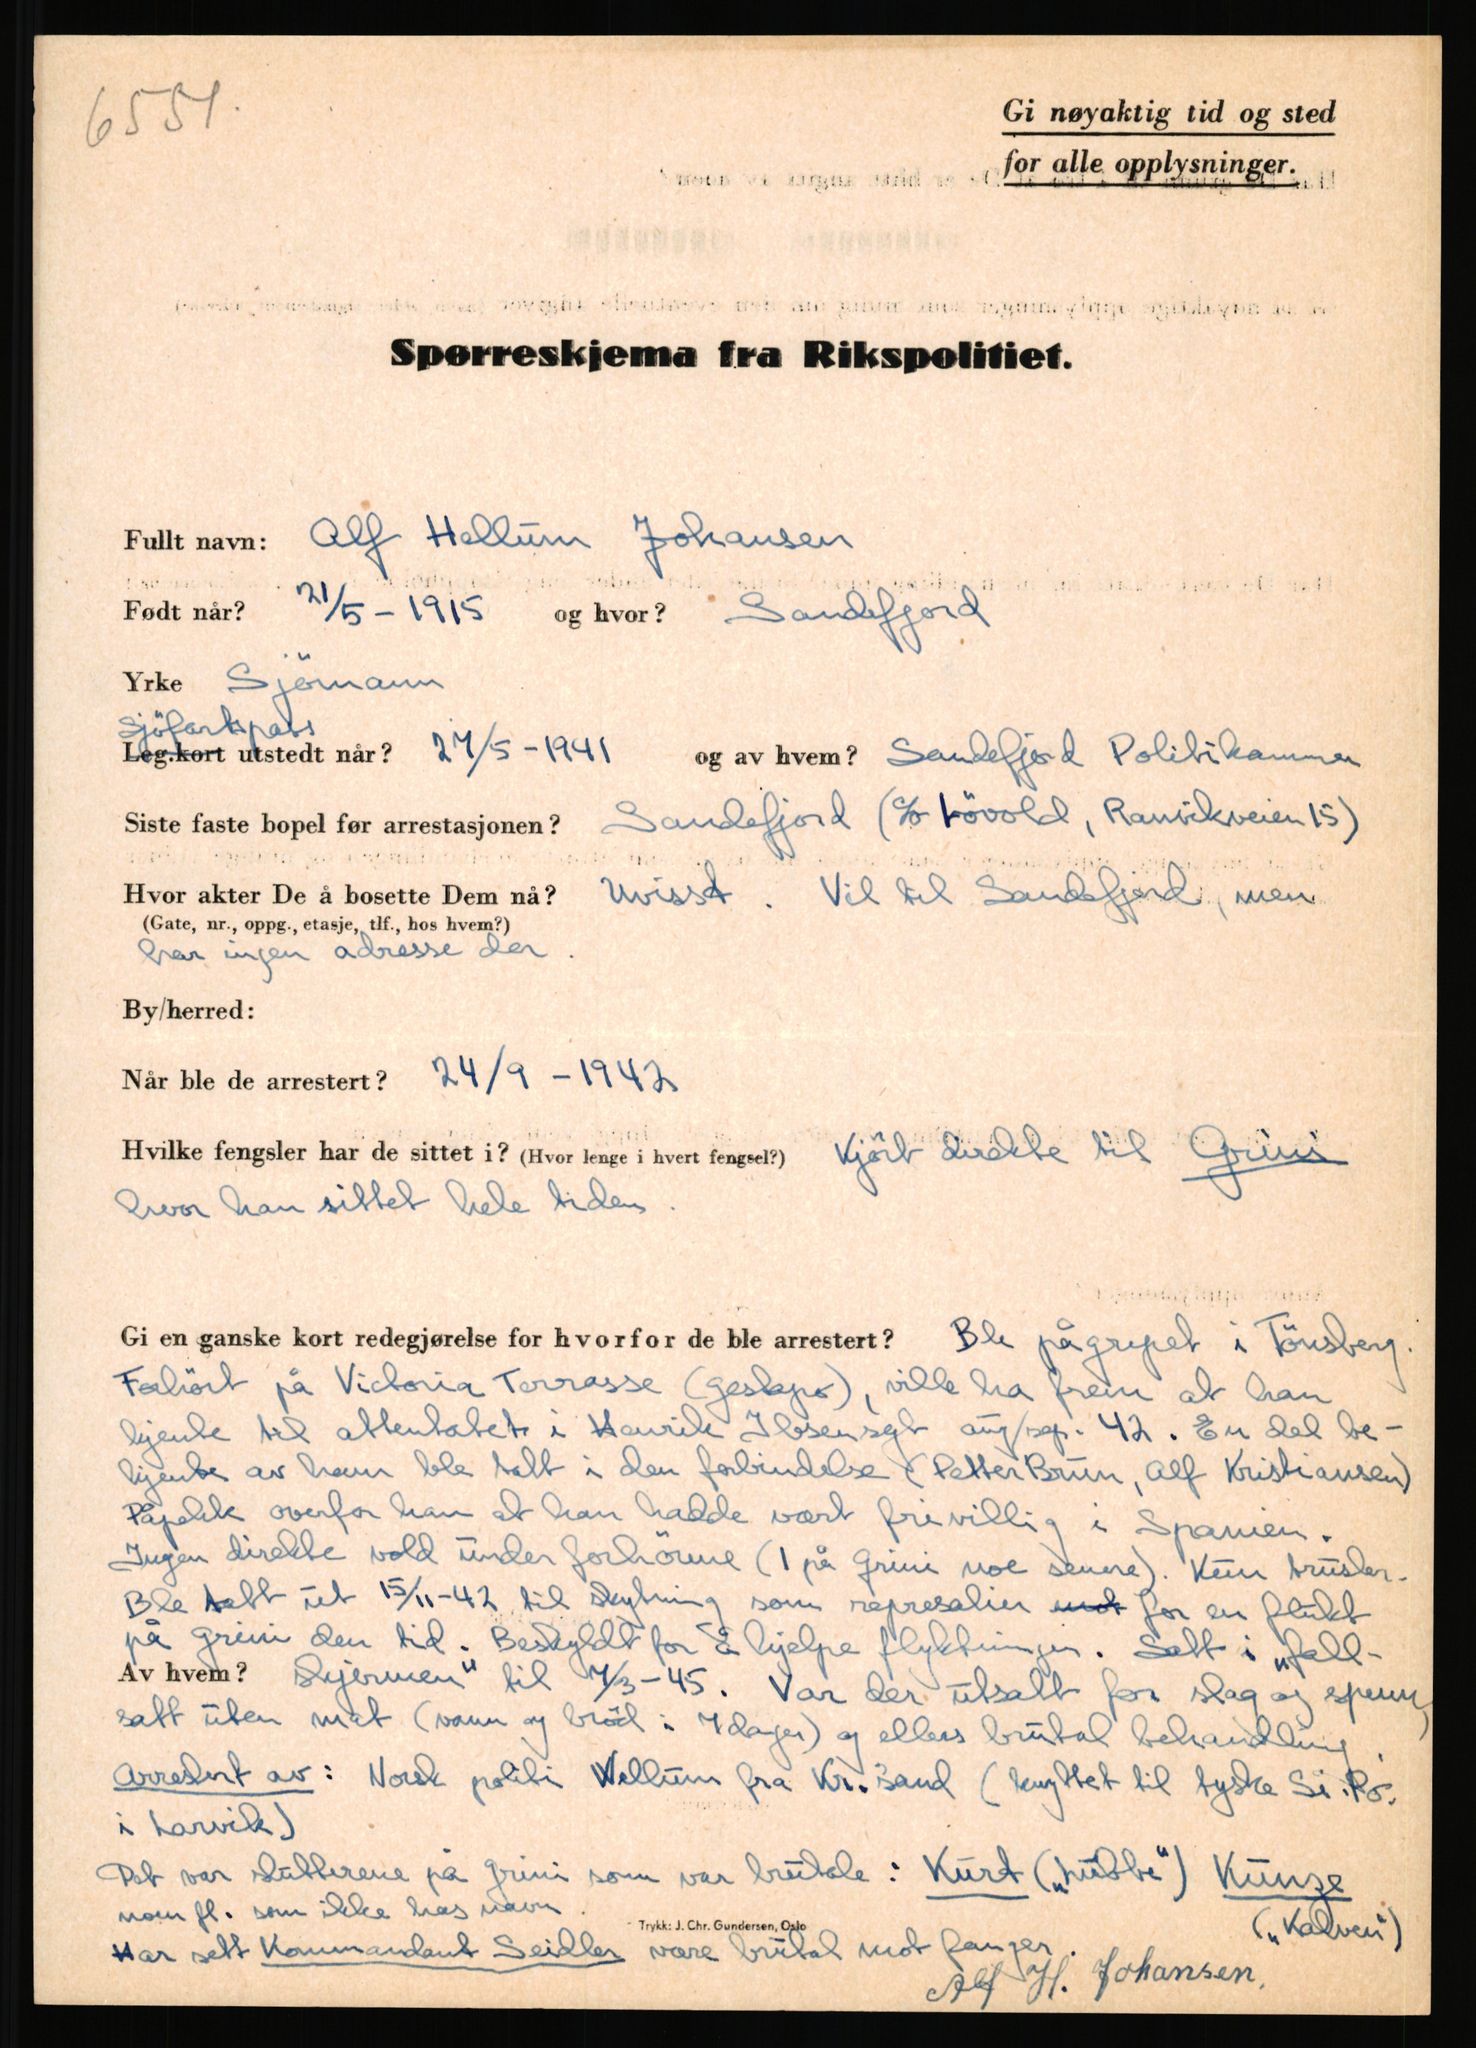 6551.
Gi nøyaktig tid og sted
for alle opplysninger.
Spørreskjema fra Rikspolitiet.
Fullt navn: Alf Hellum Johansen
Født når? 21/5 - 1915 og hvor? Sandefjord
Yrke Sjömann
Sjöfartspass
Leg.kort utstedt når? 27/5 - 1941 og av hvem? Sandefjord Politikammer
Siste faste bopel før arrestasjonen? Sandefjord (c/o Lövold, Ranvikveien 15)
Hvor akter De å bosette Dem nå? Uvisst. Vil til Sandefjord, men
(Gate, nr., oppg., etasje, tlf., hos hvem?)
har ingen adresse der.
By/herred:
Når ble de arrestert? 24/9 - 1942
Hvilke fengsler har de sittet i? (Hvor lenge i hvert fengsel?) Kjört direkte til Grini
hvor han sittet hele tiden.
Gi en ganske kort redegjørelse for hvorfor de ble arrestert? Ble pågrepet i Tönsberg.
Forhört på Victoria Terrasse (gestapo), ville ha frem at han
kjente til attentatet i Henrik Ibsensgt aug/sep. 42. En del be-
kjente av ham ble tatt i den forbindelse (Petter Brun, Alf Kristiansen)
Påpekte overfor ham at han hadde vært frivillig i Spanien.
Ingen direkte vold under forhörene (1 på Grini noe senere). Kun trusler.
Ble tatt ut 15/11-42 til skytning som represalier mot for en flukt
på Grini den tid. Beskyldt for å hjelpe flyktningen. Satt i „fall-
Av hvem? skjermen" til 7/3-45. Var der utsatt for slag og spenn,
satt uten mat (vann og bröd i 7 dager) og ellers brutal behandling.
Arrestert av: Norsk politi Wellum fra Kr.sand (knyttet til tyske Si.Po.
i Larvik)
Det var slutterene på Grini som var brutale: Kurt („Lubbe") Kunze
(„Kalven")
som ikke has navn.
Trykk: J. Chr. Gundersen, Oslo
Har sett Kommandant Seidler være brutal mot fanger.
Alf H. Johansen.